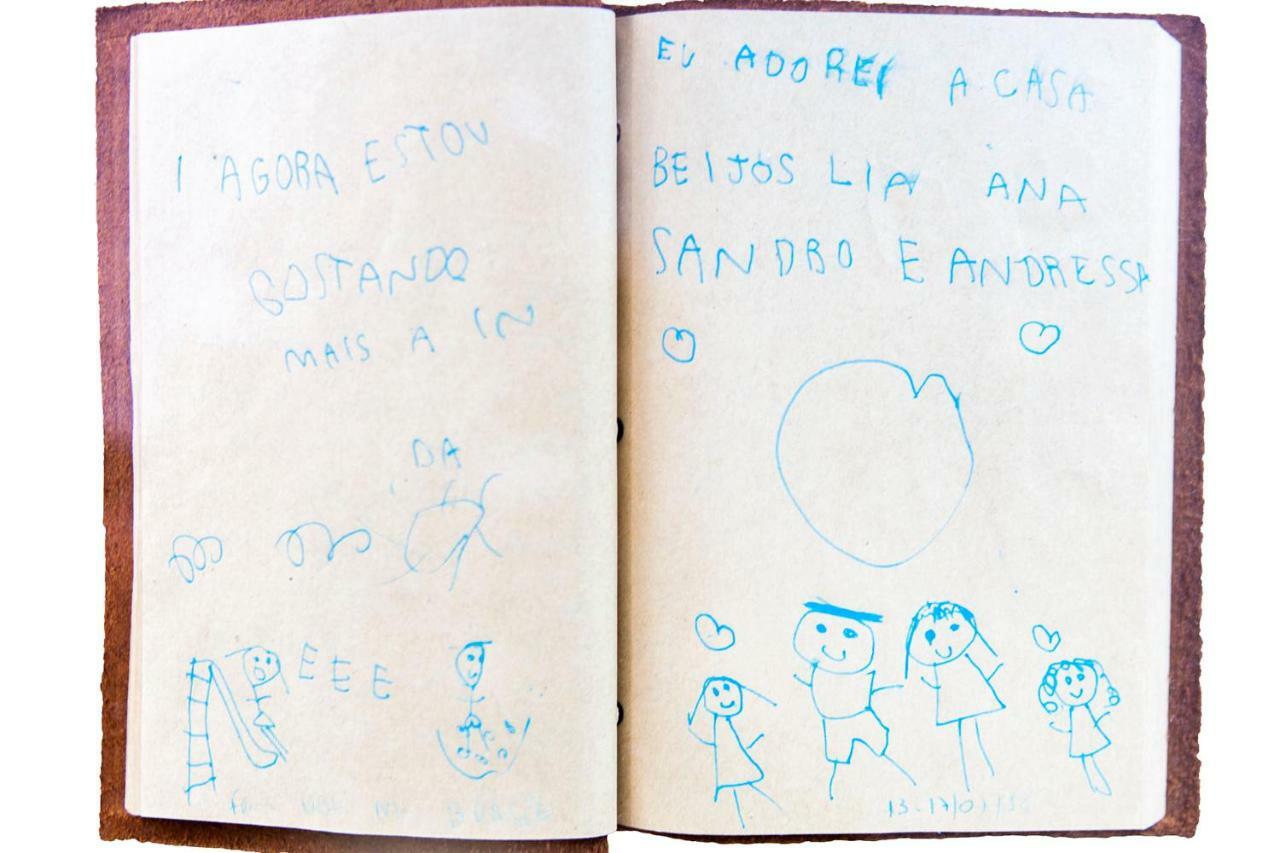 I AGORA ESTOU
GOSTANDO
MAIS A IN
DA
EEE
EU ADOREI A CASA
BEIJOS LIA ANA
SANDRO E ANDRESSA